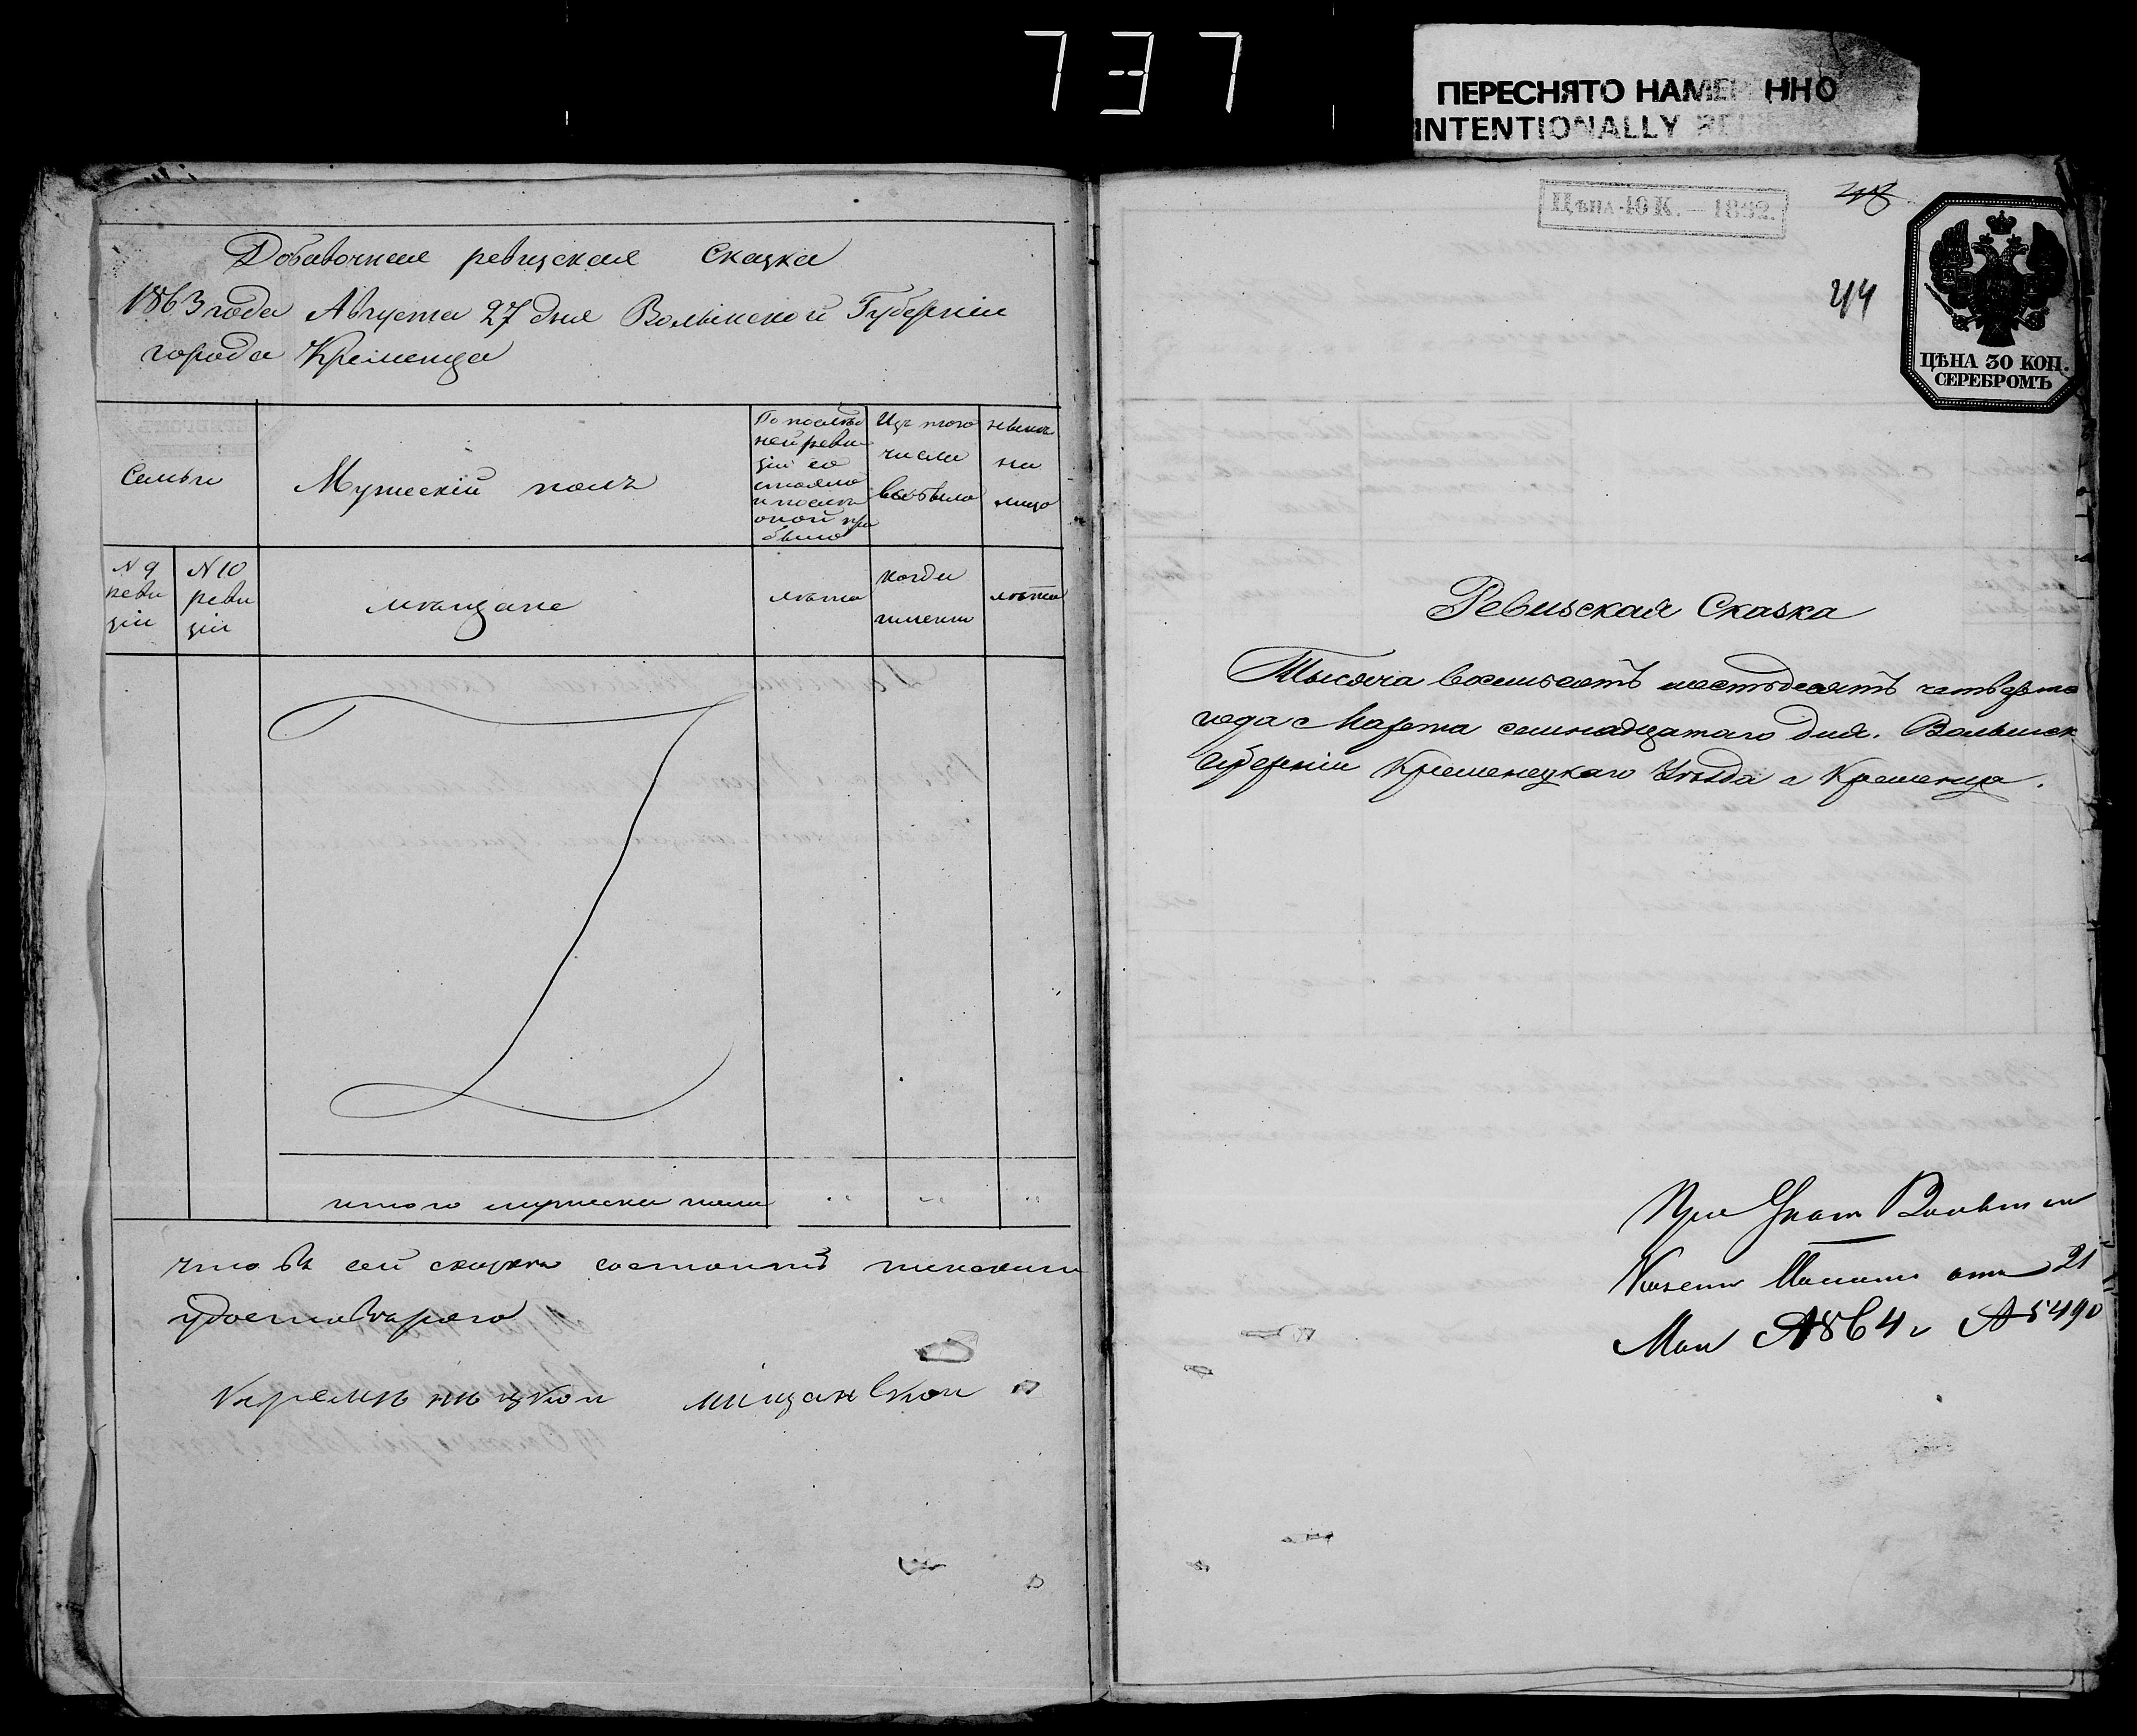 737
ПЕРЕСНЯТО НАМЕ ННО
INTENTIONALLY
Добавочная ревизская Сказка
1863 года Августа 27 дня Волынской Губерніи
города Кременца
Семьи
Мужескій полъ
По послѣд
ней реви
зіи со
стояло
и послѣ
оной при
было
Изъ того
числа
выбыло
нынѣ
на
лицо
N 9
реви
зіи
N 10
реви
зіи
мѣщане
лѣта
когда
именно
лѣта
итого мужеска пола
что въ сей сказкѣ состоитъ
удостовѣряю
Цѣна 40 К. — 1862.
44
ЦѢНА 30 КОП.
СЕРЕБРОМЪ
Ревизская Сказка
Тысяча восемьсотъ шестьдесятъ четверто
года Марта семнадцатаго дня. Волынск
Губерніи Кременецкаго Уѣзда г Кременца.
При Указѣ Волынск
Казен Палаты отъ 21
Мая 1864 г № 5490